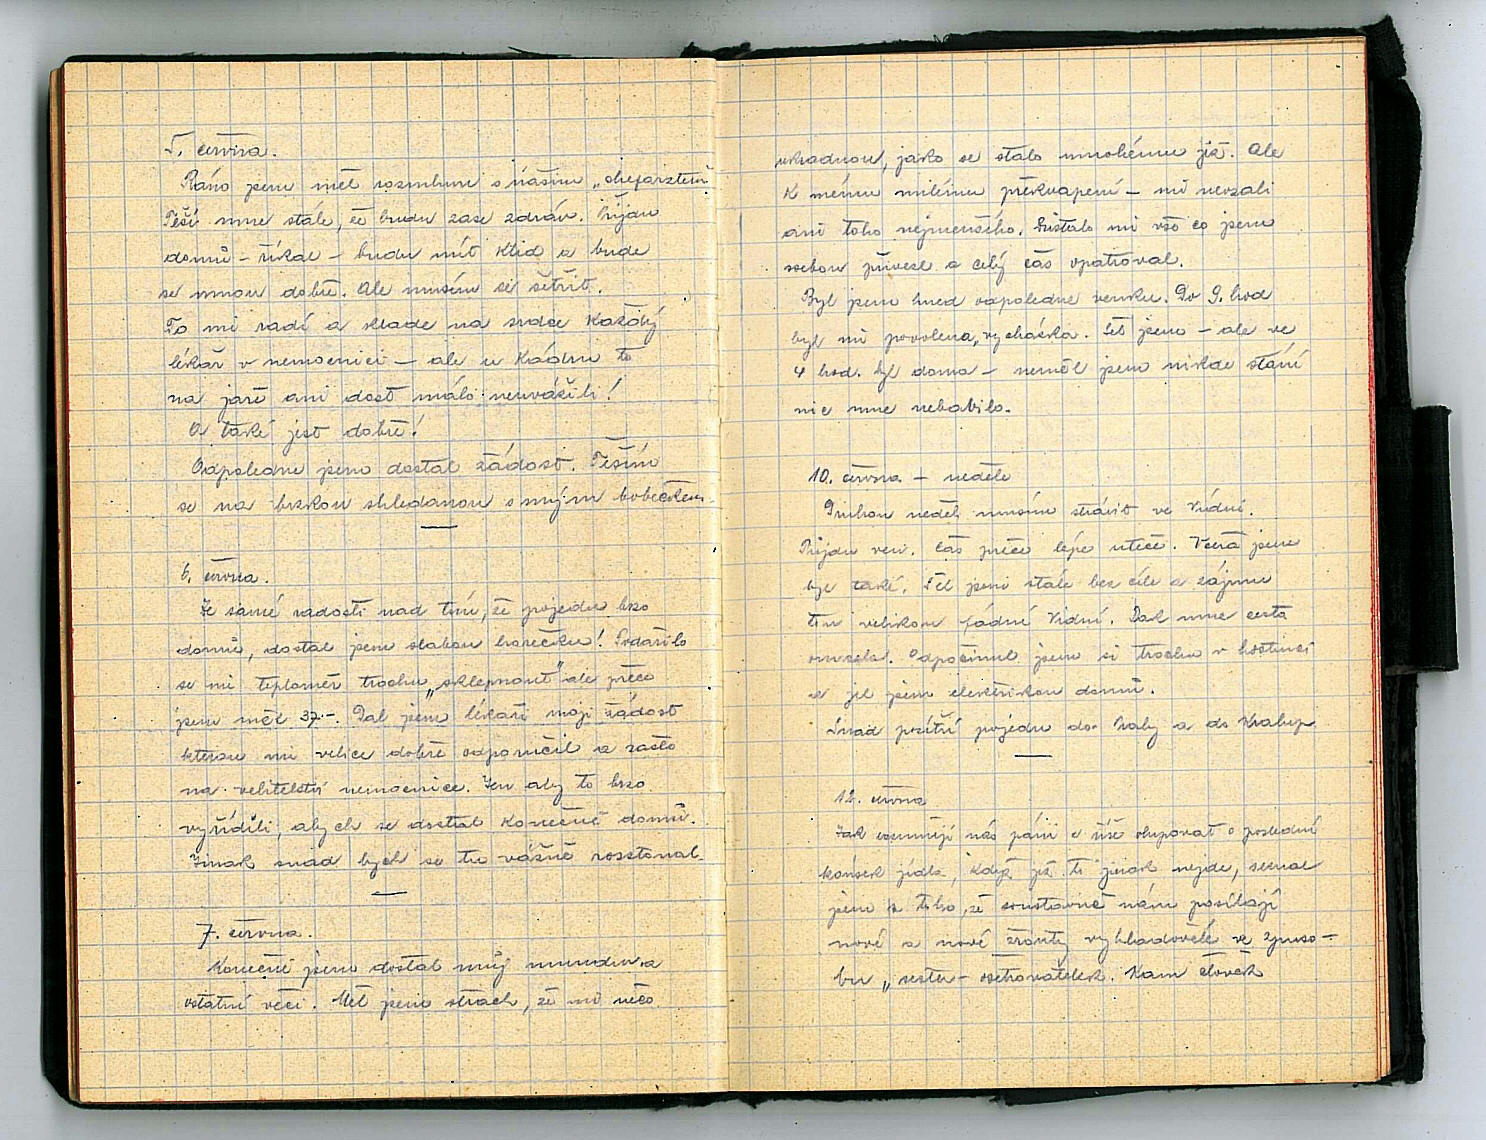 5. června.
Ráno jsem měl rozmluvu s naším „chefarztem
Těší mne stále, že budu zase zdráv. Přijdu
domů – říkal – budu mít klid a bude
se mnou dobře. Ale musím se šetřit.
To mi radí a klade na srdce každý
lékař v nemocnici – ale u kádru to
na jaře ani dost málo neuvážili!
A také jest dobře!
Odpoledne jsem dostal žádost. Těším
se na brzkou shledanou s mým bobečkem
6. června.
Ze samé radosti nad tím, že pojedu brzo
domů, dostal jsem slabou horečku! Podařilo
se mi teploměr trochu „sklepnout" ale přece
jsem měl 37.–. Dal jsem lékaři moji žádost
kterou mi velice dobře odporučil a zašlo
na velitelství nemocnice. Jen aby to brzo
vyřídili abych se dostal konečně domů.
Jinak snad bych se tu vážně rozstonal.
7. června.
Konečně jsem dostal můj mundur a
ostatní věci. Měl jsem strach, že mi něco
ukradnou, jako se stalo mnohému již. Ale
k mému milému překvapení – mi nevzali
ani toho nejmenšího. Zůstalo mi vše co jsem
sebou přivezl a celý čas opatroval.
Byl jsem hned odpoledne venku. Do 9. hod
byl mi povolena, vycházka. Šel jsem – ale ve
4 hod. byl doma – neměl jsem nikde stání
nic mne nebavilo.
10. června – neděle
Druhou neděli musím strávit ve Vídni.
Půjdu ven. Čas přece lépe uteče. Včera jsem
byl také. Šel jsem stále bez cíle a zájmu
tou velikou fádní Vídní. Pak mne cesta
omrzela. Odpočinul jsem si trochu v hostinci
a jel jsem elektrikou domů.
Snad pozítří pojedu do Prahy a do Kralup
12. června
Jak rozumějí nás páni z říše olupovat o poslední
kousek jídla, když již to jinak nejde, seznal
jsem z toho, že soustavně nám posílají
nové a nové žrouty vyhladovělé ve způso–
bu „sester – ošetřovatelek. Kam člověk